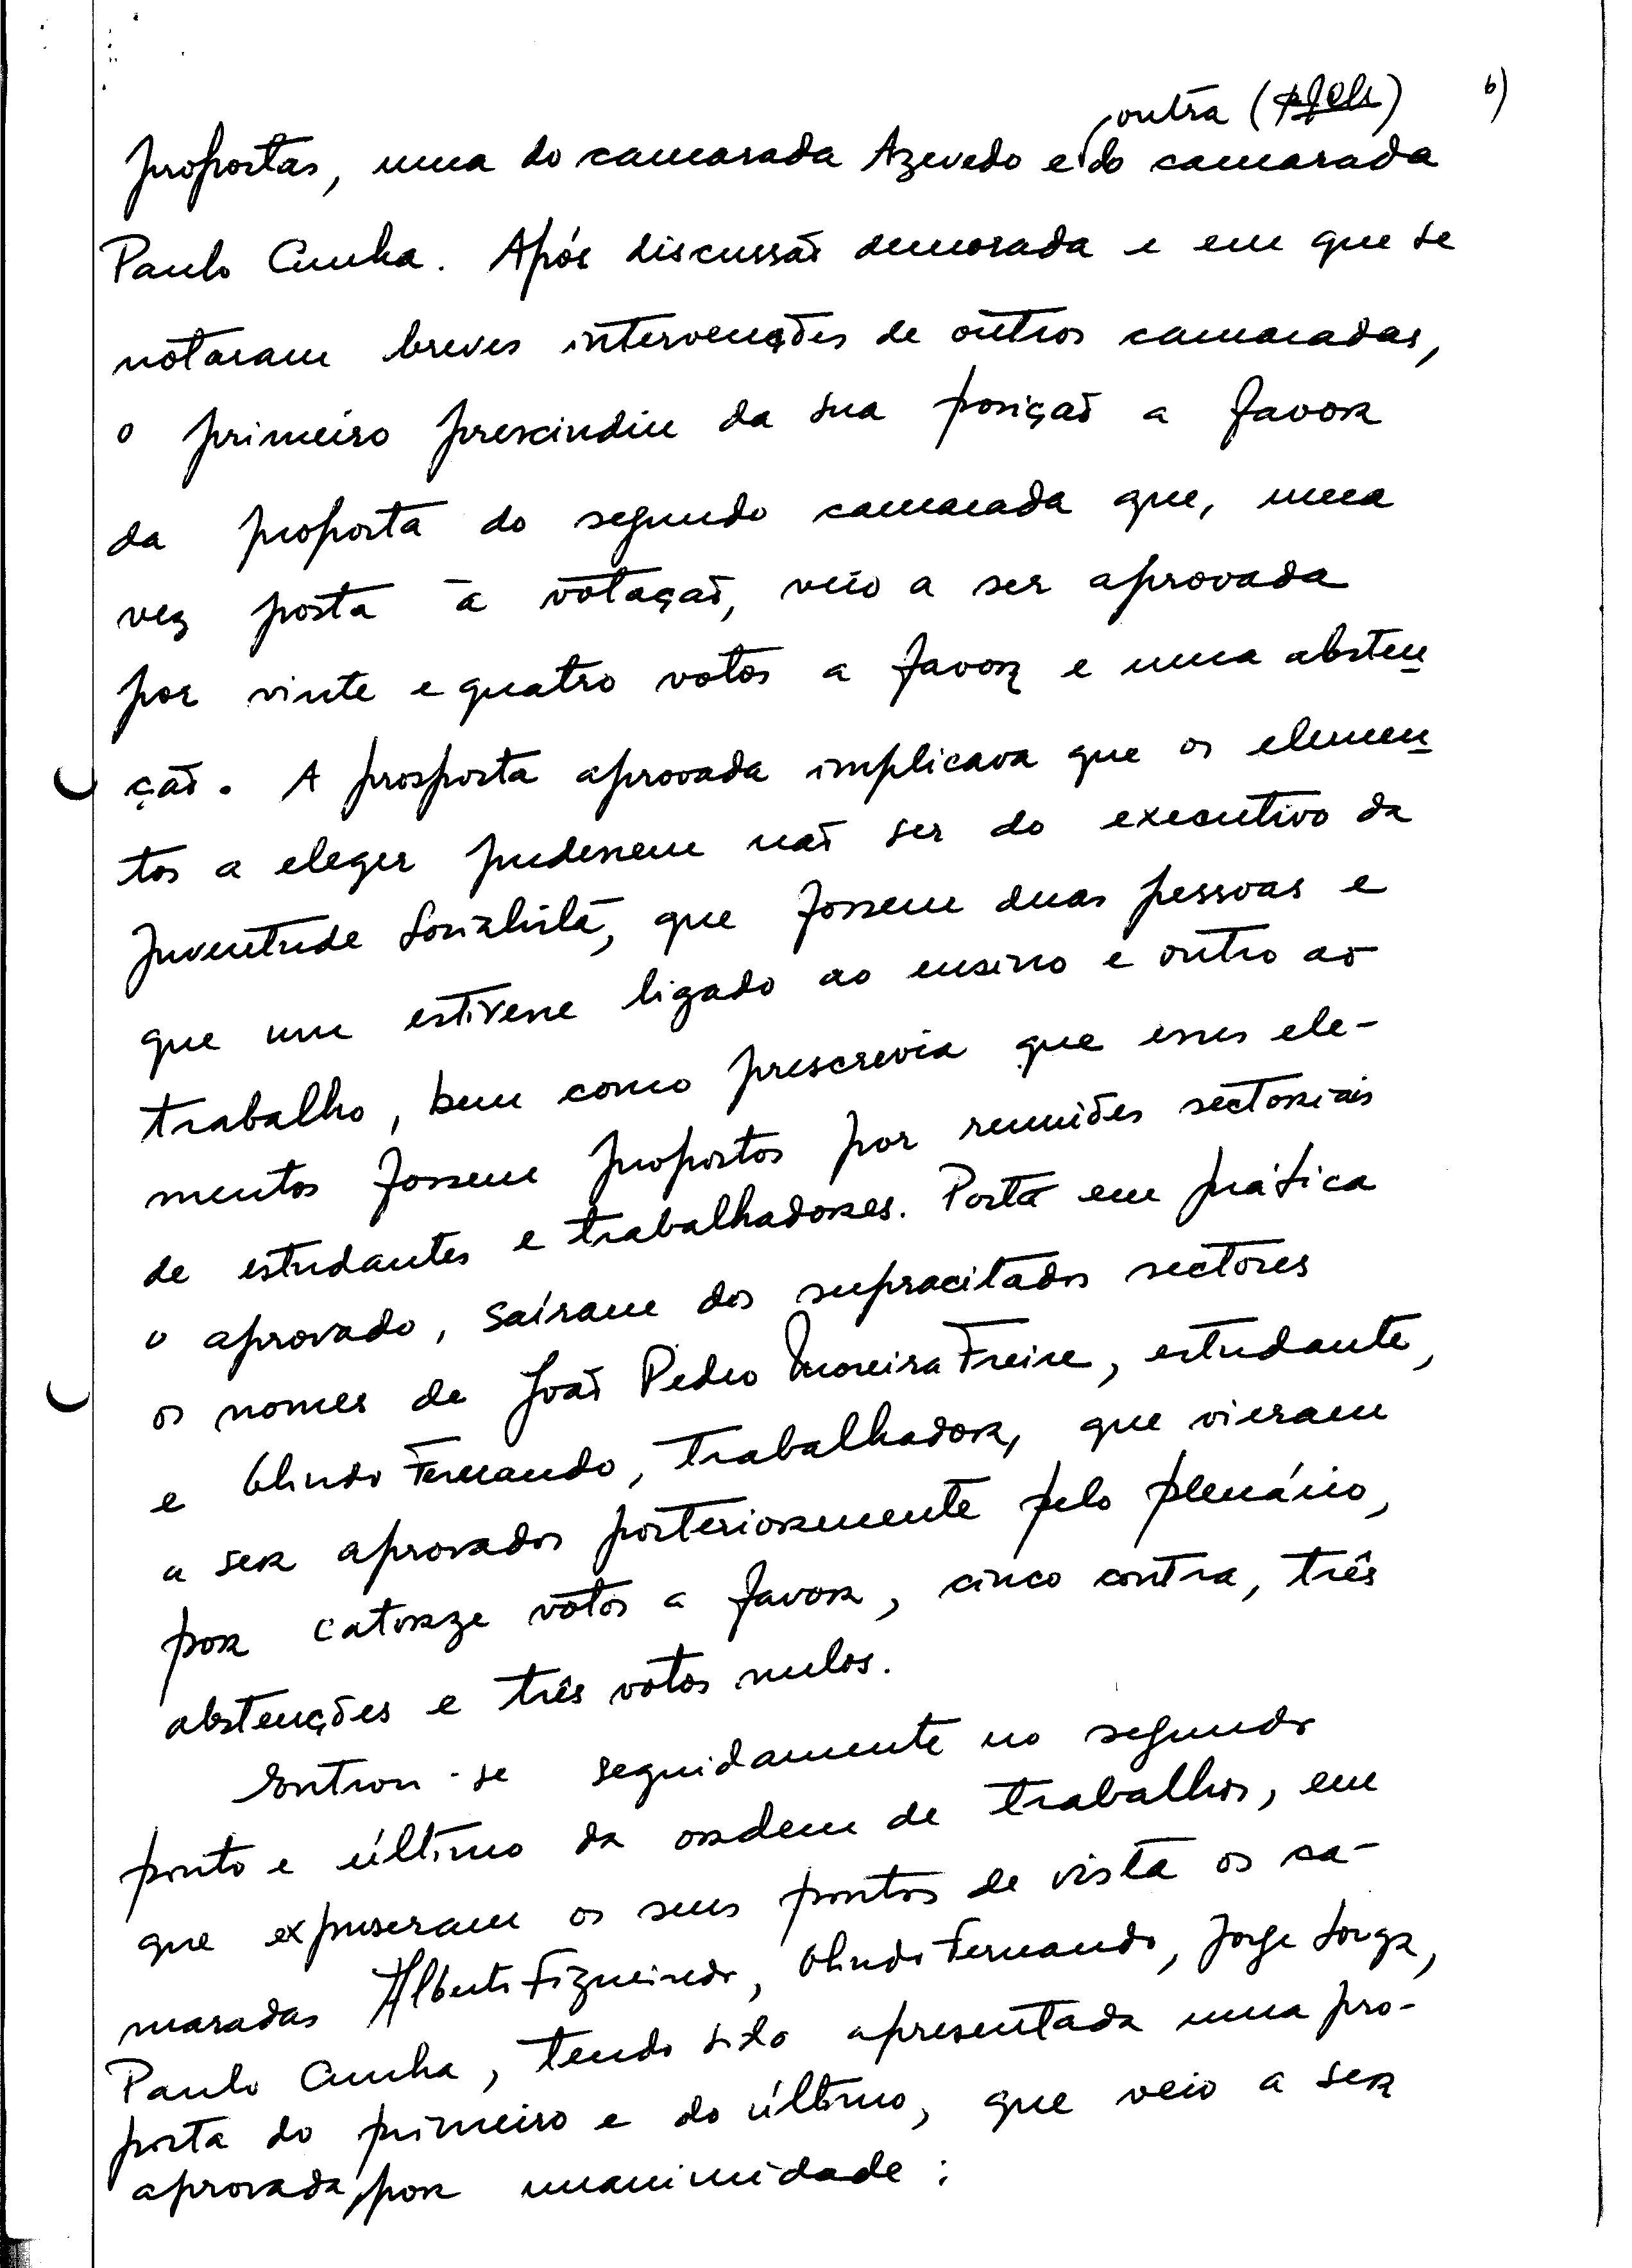 6)
outra
propostas, uma do camarada Azevedo e do camarada
Paulo Cunha. Após discussão demorada e em que se
notaram breves intervenções de outros camaradas,
o primeiro prescindiu da sua posição a favor
da proposta do segundo camarada que, uma
vez posta à votação, veio a ser aprovada
por vinte e quatro votos a favor e uma absten
ção. A prosposta aprovada implicava que os elemen
tos a eleger pudessem não ser do executivo da
Juventude Socialista, que fossem duas pessoas e
que um estivesse ligado ao ensino e outro ao
trabalho, bem como prescrevia que esses ele-
mentos fossem propostos por reuniões sectoriais
de estudantes e trabalhadores. Posta em prática
o aprovado, saíram dos supracitados sectores
os nomes de João Pedro Moreira Freire, estudante,
e Olindo Fernando, trabalhador, que vieram
a ser aprovados posteriormente pelo plenário,
por catorze votos a favor, cinco contra, três
abstenções e três votos nulos.
Entrou-se seguidamente no segundo
ponto e último da ordem de trabalhos, em
que expuseram os seus pontos de vista os ca-
maradas Alberto Figueiredo, Olindo Fernando, Jorge
Paulo Cunha, tendo sido apresentada uma pro-
posta do primeiro e do último, que veio a ser
aprovada, por unanimidade: